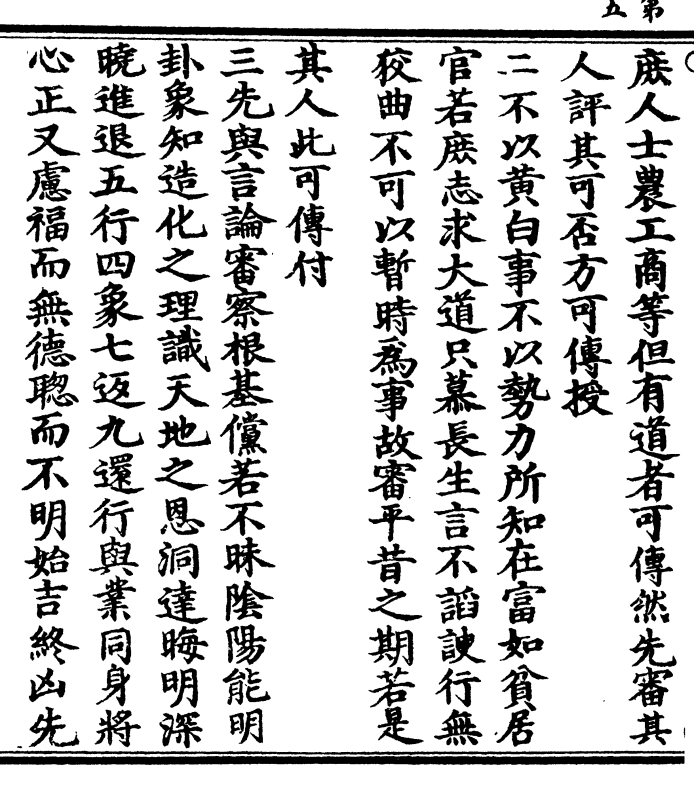 第五
庶人士農工商等但有道者可傳然先審其
人評其可否方可傳授
二不以黃白事不以勢力所知在富如貧居
官若庶志求大道只慕長生言不諂諛行無
狡曲不可以暫時為事故審平昔之期若是
其人此可傳付
三先與言論審察根基儻若不昧陰陽能明
卦象知造化之理識天地之恩洞達晦明深
曉進退五行四象七返九還行與業同身將
心正又慮福而無德聰而不明始吉終凶先